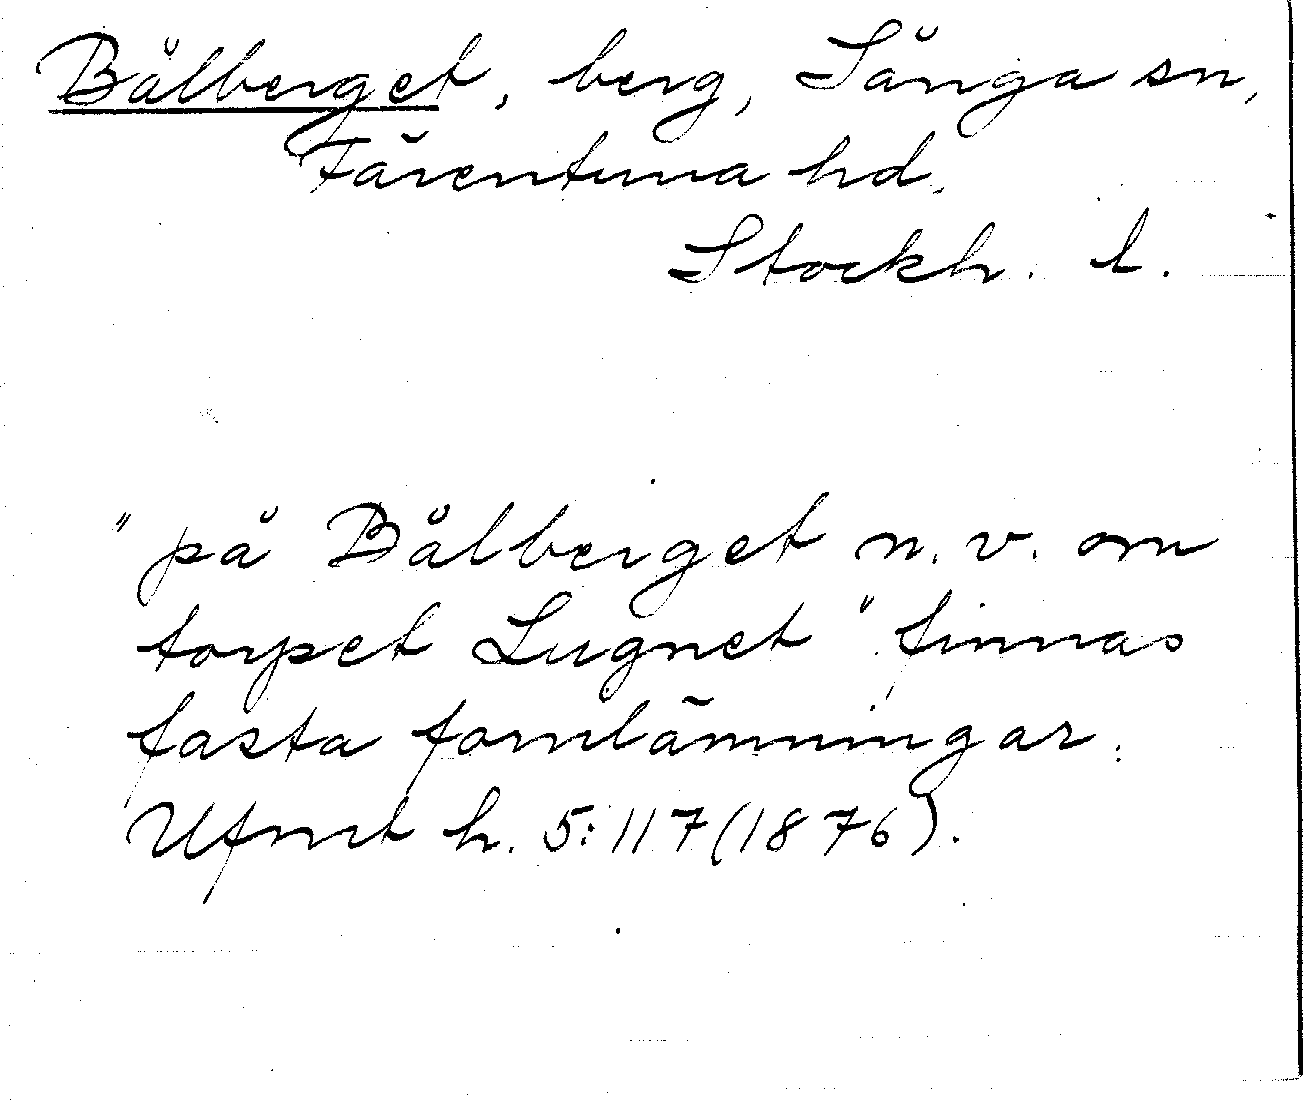 Bålberget, berg, Sånga sn,
Färentuna hd.
Stockh. l.
"på Bålberget n.v. om
torpet Lugnet" finnas
fasta fornlämningar.
Ufmt h. 5:117(1876).